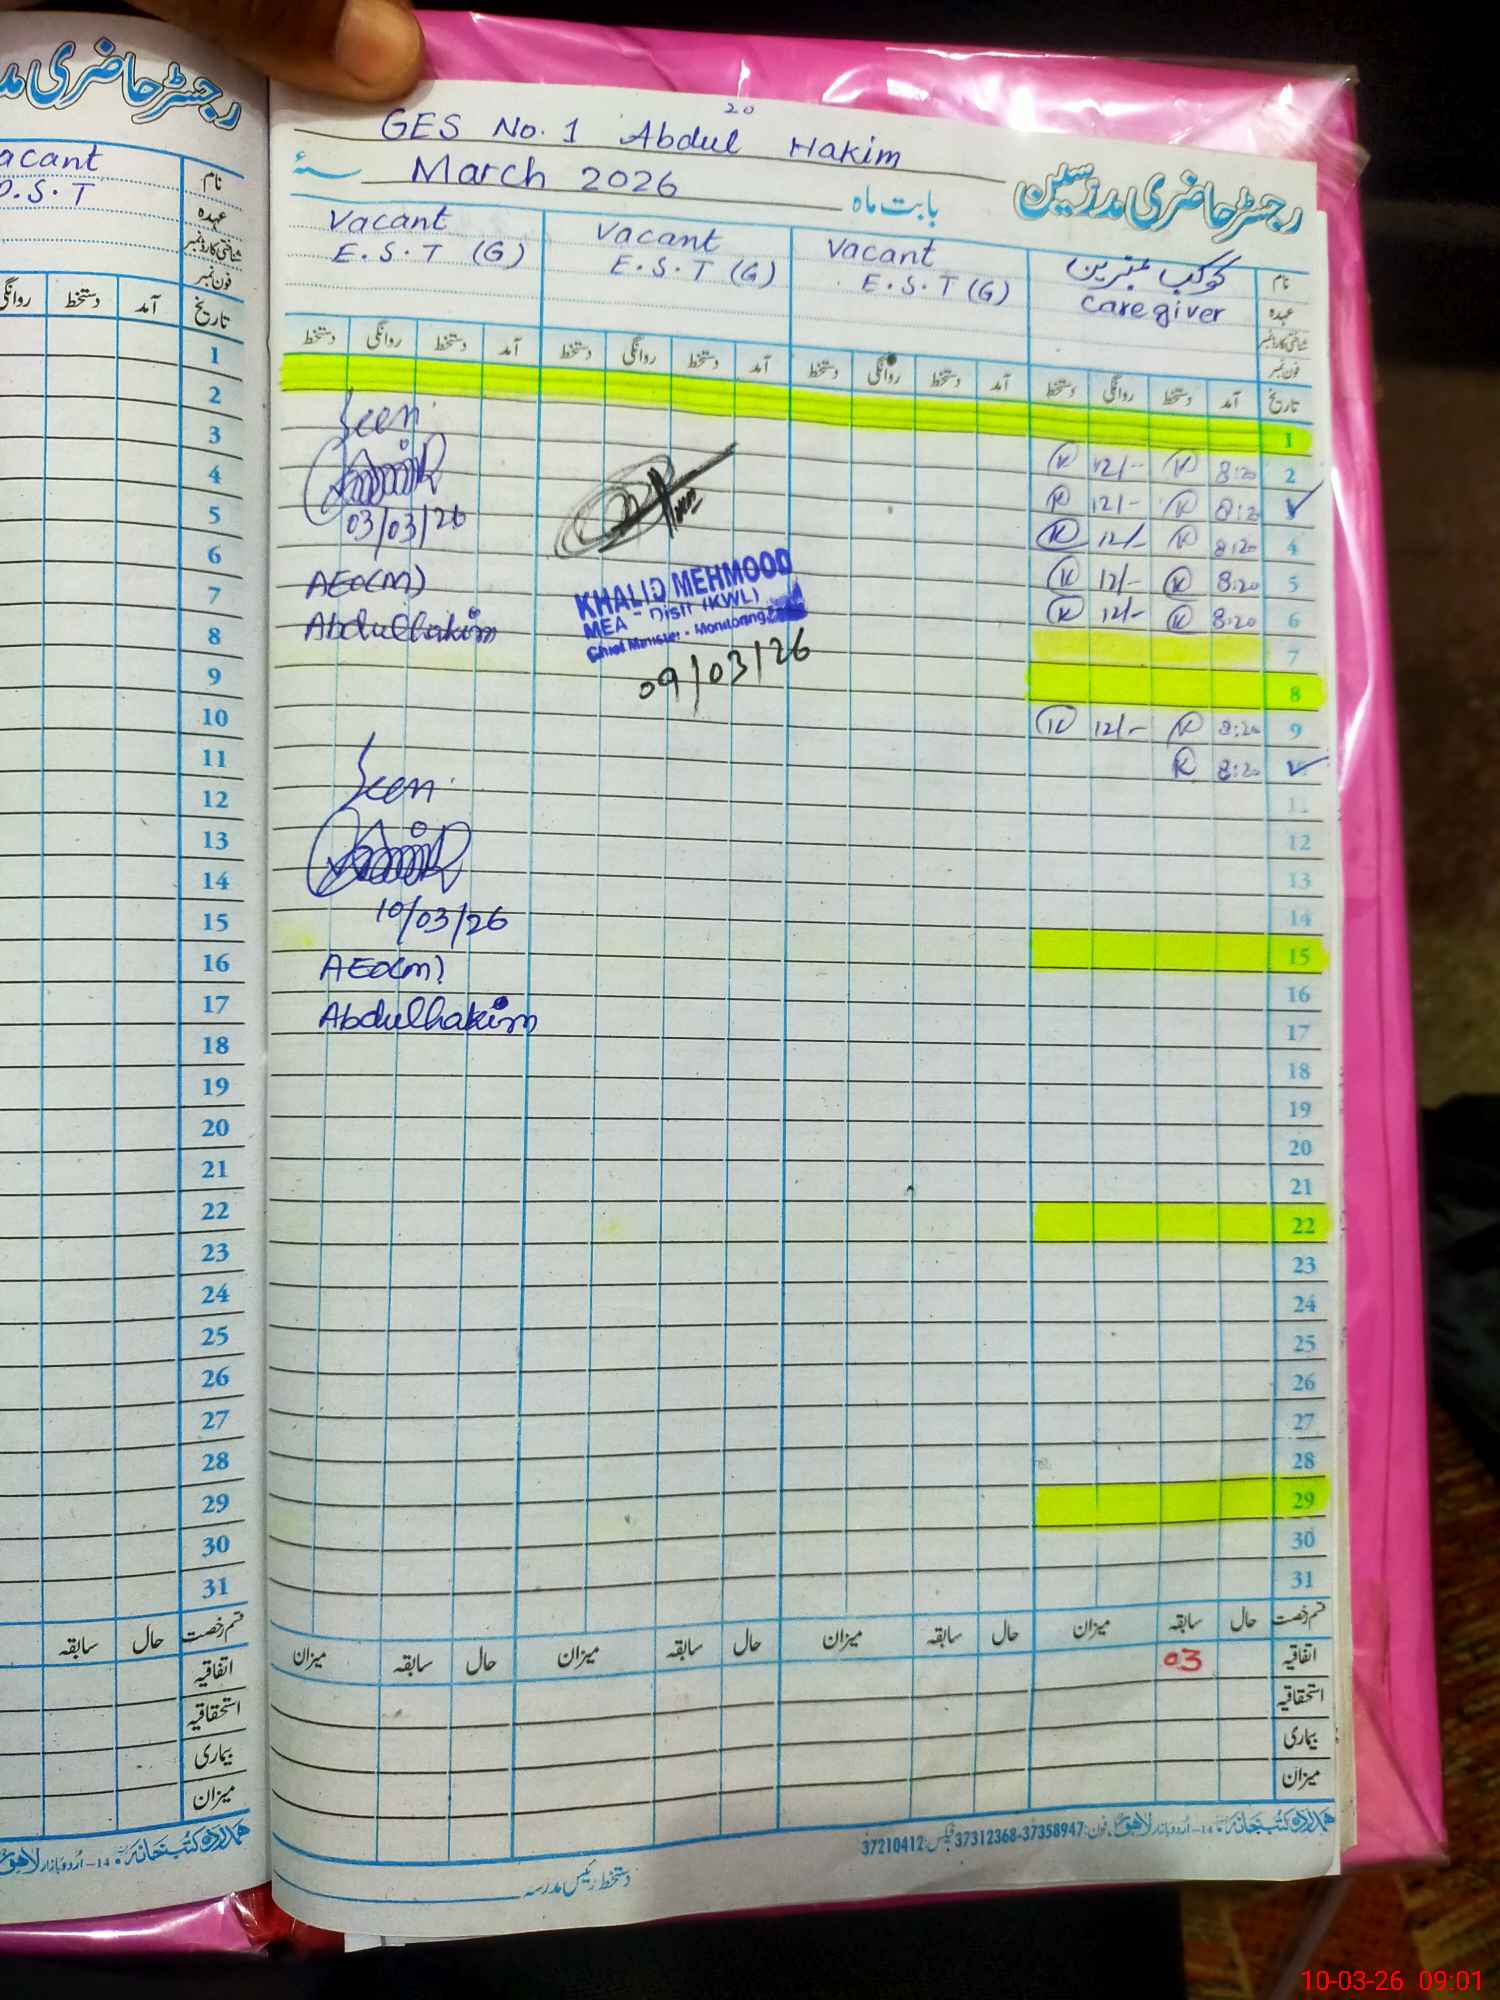 رجسٹر حاضری
acant
نام
O.S.T
عہدہ
شناختی کارڈ نمبر
فون نمبر
دستخط آمد تاریخ
1
2
3
4
5
6
7
8
9
10
11
12
13
14
15
16
17
18
19
20
21
22
23
24
25
26
27
28
29
30
31
سابقہ حال قسم رخصت
اتفاقیہ
استحقاقیہ
بیماری
میزان
20
GES No. 1 Abdul Hakim
رجسٹر حاضری مدرسین
بابت ماہ March 2026
Vacant
E.S.T (G)
Vacant
E.S.T (G)
Vacant
E.S.T (G)
نام
Caregiver
عہدہ
شناختی کارڈ نمبر
فون نمبر
تاریخ آمد دستخط روانگی دستخط آمد دستخط روانگی دستخط آمد دستخط روانگی دستخط آمد دستخط روانگی دستخط
1
2 8:20 K 12/- K
8:20 K 12/- K
4 8:20 K 12/- K
5 8:20 K 12/- K
6 8:20 K 12/- K
7
8
9 8:20 K 12/- K
8:20 K
11
12
13
14
15
16
17
18
19
20
21
22
23
24
25
26
27
28
29
30
31
Seen
03/03/26
AEO(M)
Abdulhakim
KHALID MEHMOOD
MEA - Distt (KWL)
Chief Minister - Monitoring
09/03/26
Seen
10/03/26
AEO(M)
Abdulhakim
قسم رخصت حال سابقہ میزان حال سابقہ میزان حال سابقہ میزان حال سابقہ میزان
اتفاقیہ 03
استحقاقیہ
بیماری
میزان
ہمدرد کتب خانہ 14-اردو بازار لاہور فون: 37358947-37312368 فیکس: 37210412
دستخط رئیس مدرسہ
10-03-26 09:01